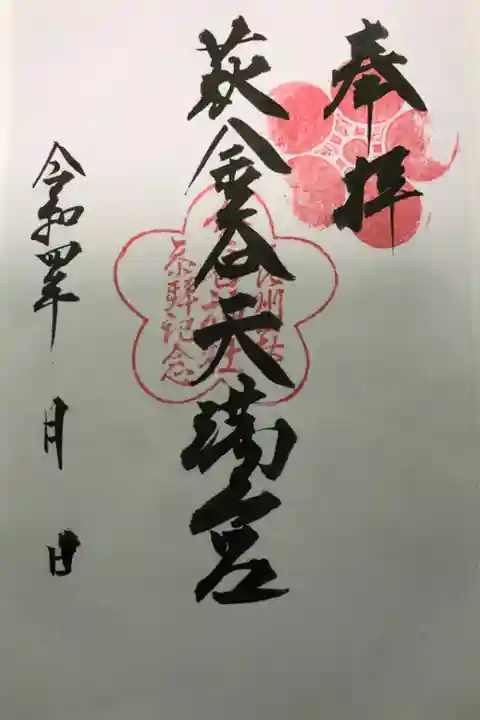 奉拝
萩金谷天満宮
参拝記念
令和四年 月 日